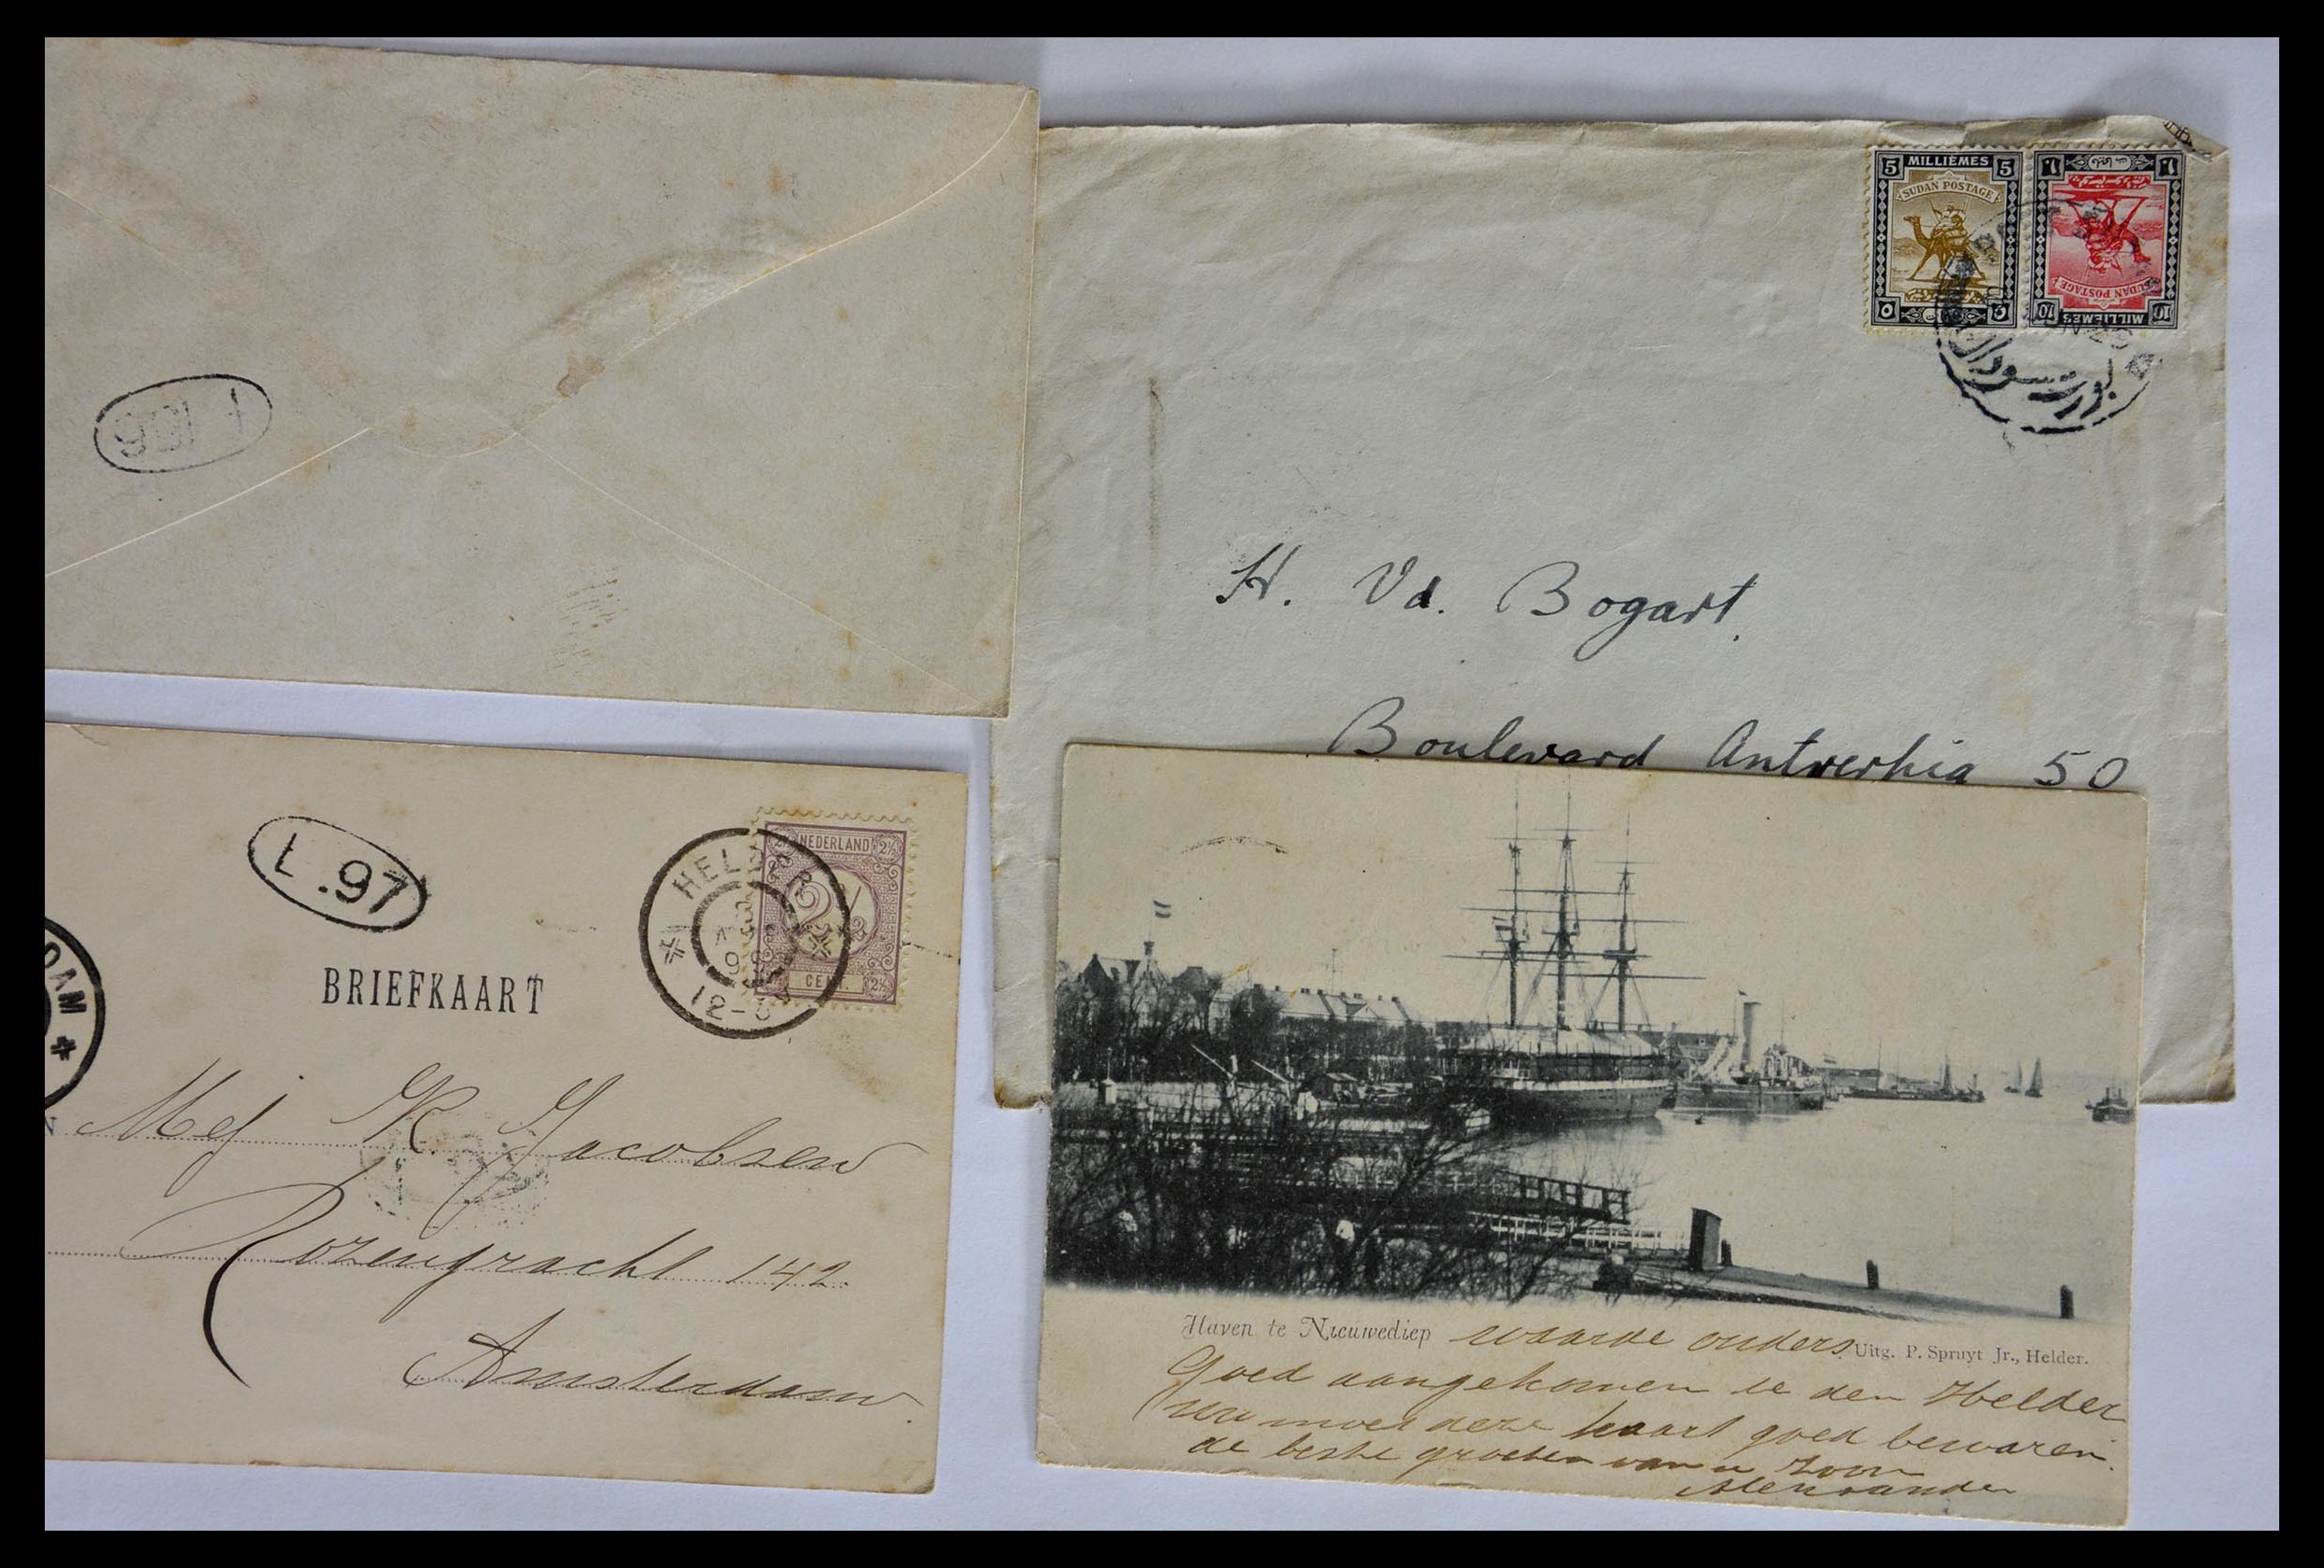 5 MILLIÈMES 5
SUDAN POSTAGE
SUDAN POSTAGE
10 MILLIÈMES 10
بورت سودان
H. Vd. Bogart.
Boulevard Antverpia 50
L.97
NEDERLAND
2½
CENT.
HELDER
98
12-
DAM
BRIEFKAART
Mej K. Jacobsen
Rozengracht 142
Amsterdam.
Haven te Nieuwediep
waarde ouders
Uitg. P. Spruyt Jr., Helder.
Goed aangekomen te den Helder
moet deze kaart goed bewaren.
de beste groeten van u zoon
Alexander